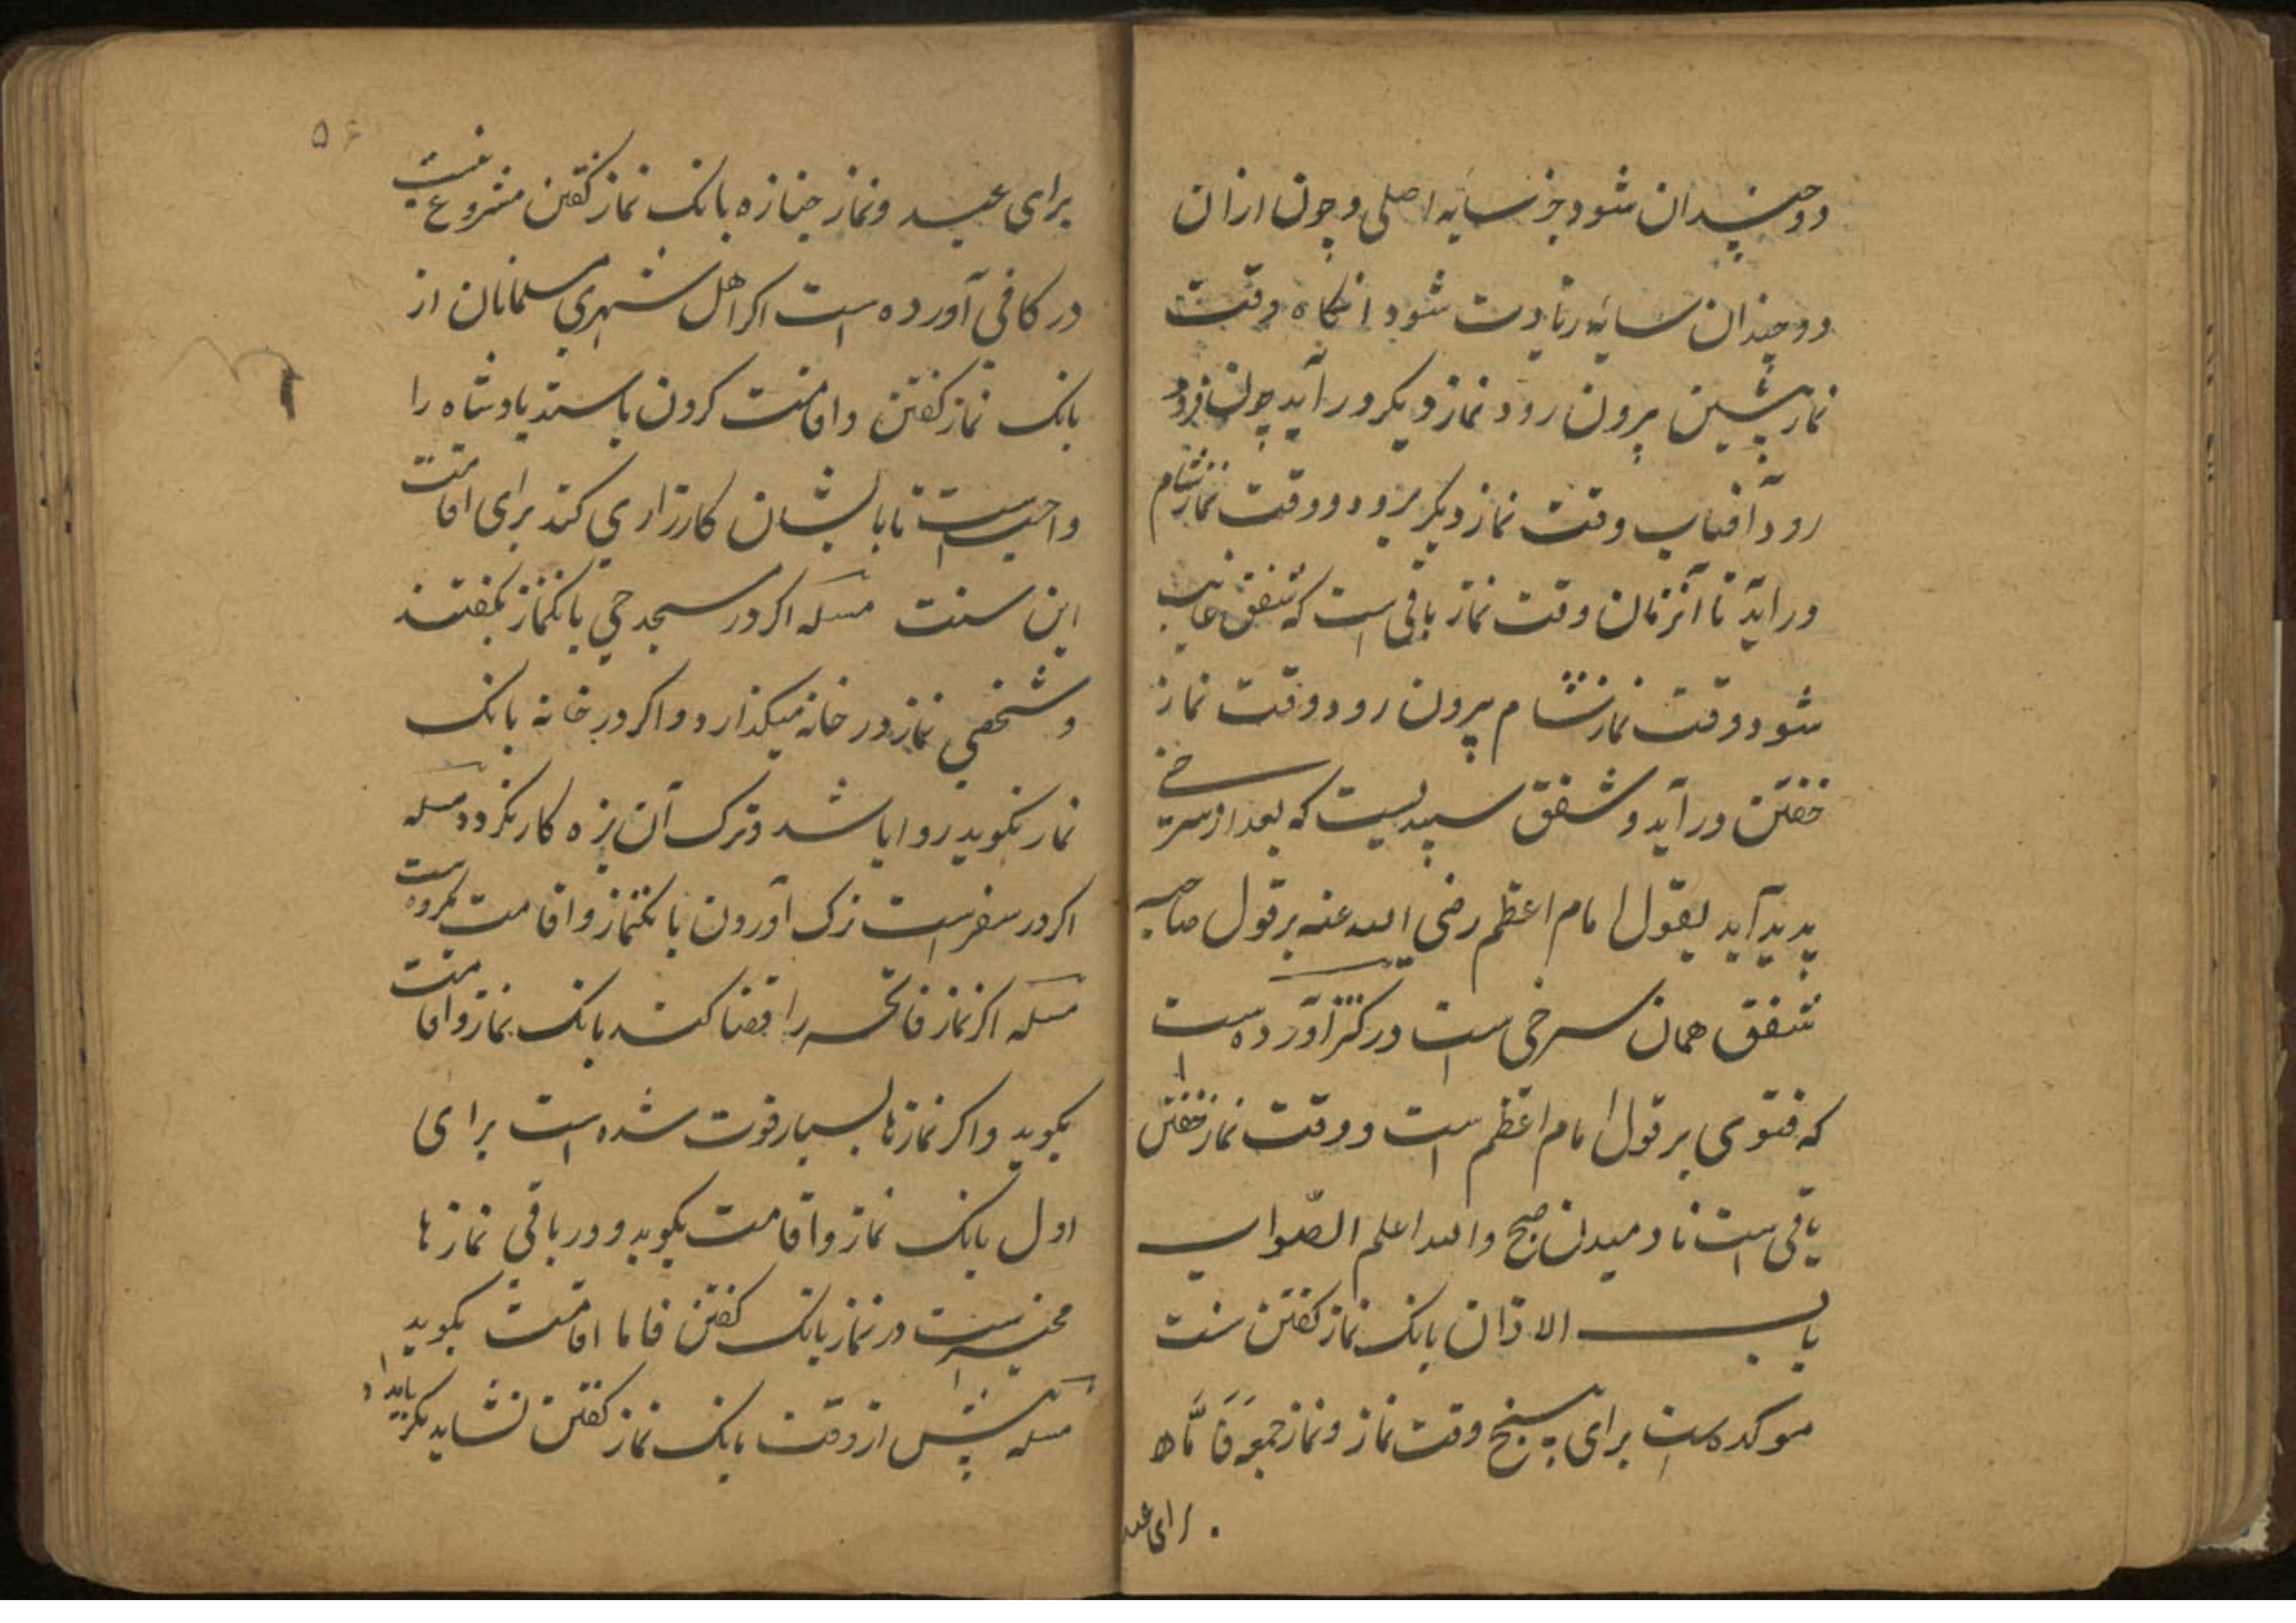 دوچندان شود جز سایه اصلی و چون ازان
دوچندان سایه زیادت شود انگاه وقت
نماز پیشین بیرون رود نماز دیگر درآید چون فرو
رود آفتاب وقت نماز دیگر برود و وقت نماز شام
درآید تا آنزمان وقت نماز باقی است که شفق غایب
شود و وقت نماز شام بیرون رود و وقت نماز
خفتن درآید و شفق سپیدیست که بعد از سرخی
پدید آید بقول امام اعظم رضی الله عنه بر قول صاحبیه
شفق همان سرخی است در کنز آورده است
که فتوی بر قول امام اعظم است و وقت نماز خفتن
باقی است تا دمیدن صبح والله اعلم الصّواب
باب الاذان بانک نماز کفتن سنت
موکده است برای پنج وقت نماز و نماز جمعه فَاَمَّا
برای عید
۵۶
برای عید و نماز جنازه بانک نماز کفتن مشروع نیست
در کافی آورده است اکر اهل شهری مسلمانان از
بانک نماز کفتن و اقامت کردن باستند پادشاه را
واجبست تا با ایشان کارزاری کند برای اقامت
این سنت مسله اکر در مسجد حی بانکنماز بکفتند
و شخصی نماز در خانه میکذارد و اکر در خانه بانک
نماز نکوید روا باشد و ترک آن بزه کار نکردد مسله
اکر در سفر است ترک آوردن بانکنماز و اقامت مکروه است
مسله اکر نماز فاتحه را قضا کند بانک نماز و اقامت
بکوید و اکر نمازها بسیار فوت شده است برای
اول بانک نماز و اقامت بکوید و در باقی نمازها
مخیر است در نماز بانک کفتن فاما اقامت بکوید
مسله پیش از وقت بانک نماز کفتن نشاید مکر بامداد